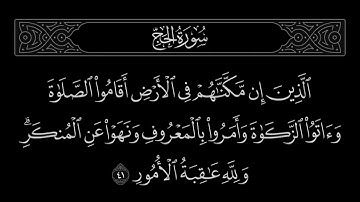 سُورَةُ الحَجِّ
ٱلَّذِينَ إِن مَّكَّنَّٰهُمۡ فِي ٱلۡأَرۡضِ أَقَامُواْ ٱلصَّلَوٰةَ
وَءَاتَوُاْ ٱلزَّكَوٰةَ وَأَمَرُواْ بِٱلۡمَعۡرُوفِ وَنَهَوۡاْ عَنِ ٱلۡمُنكَرِۗ
وَلِلَّهِ عَٰقِبَةُ ٱلۡأُمُورِ ٤١